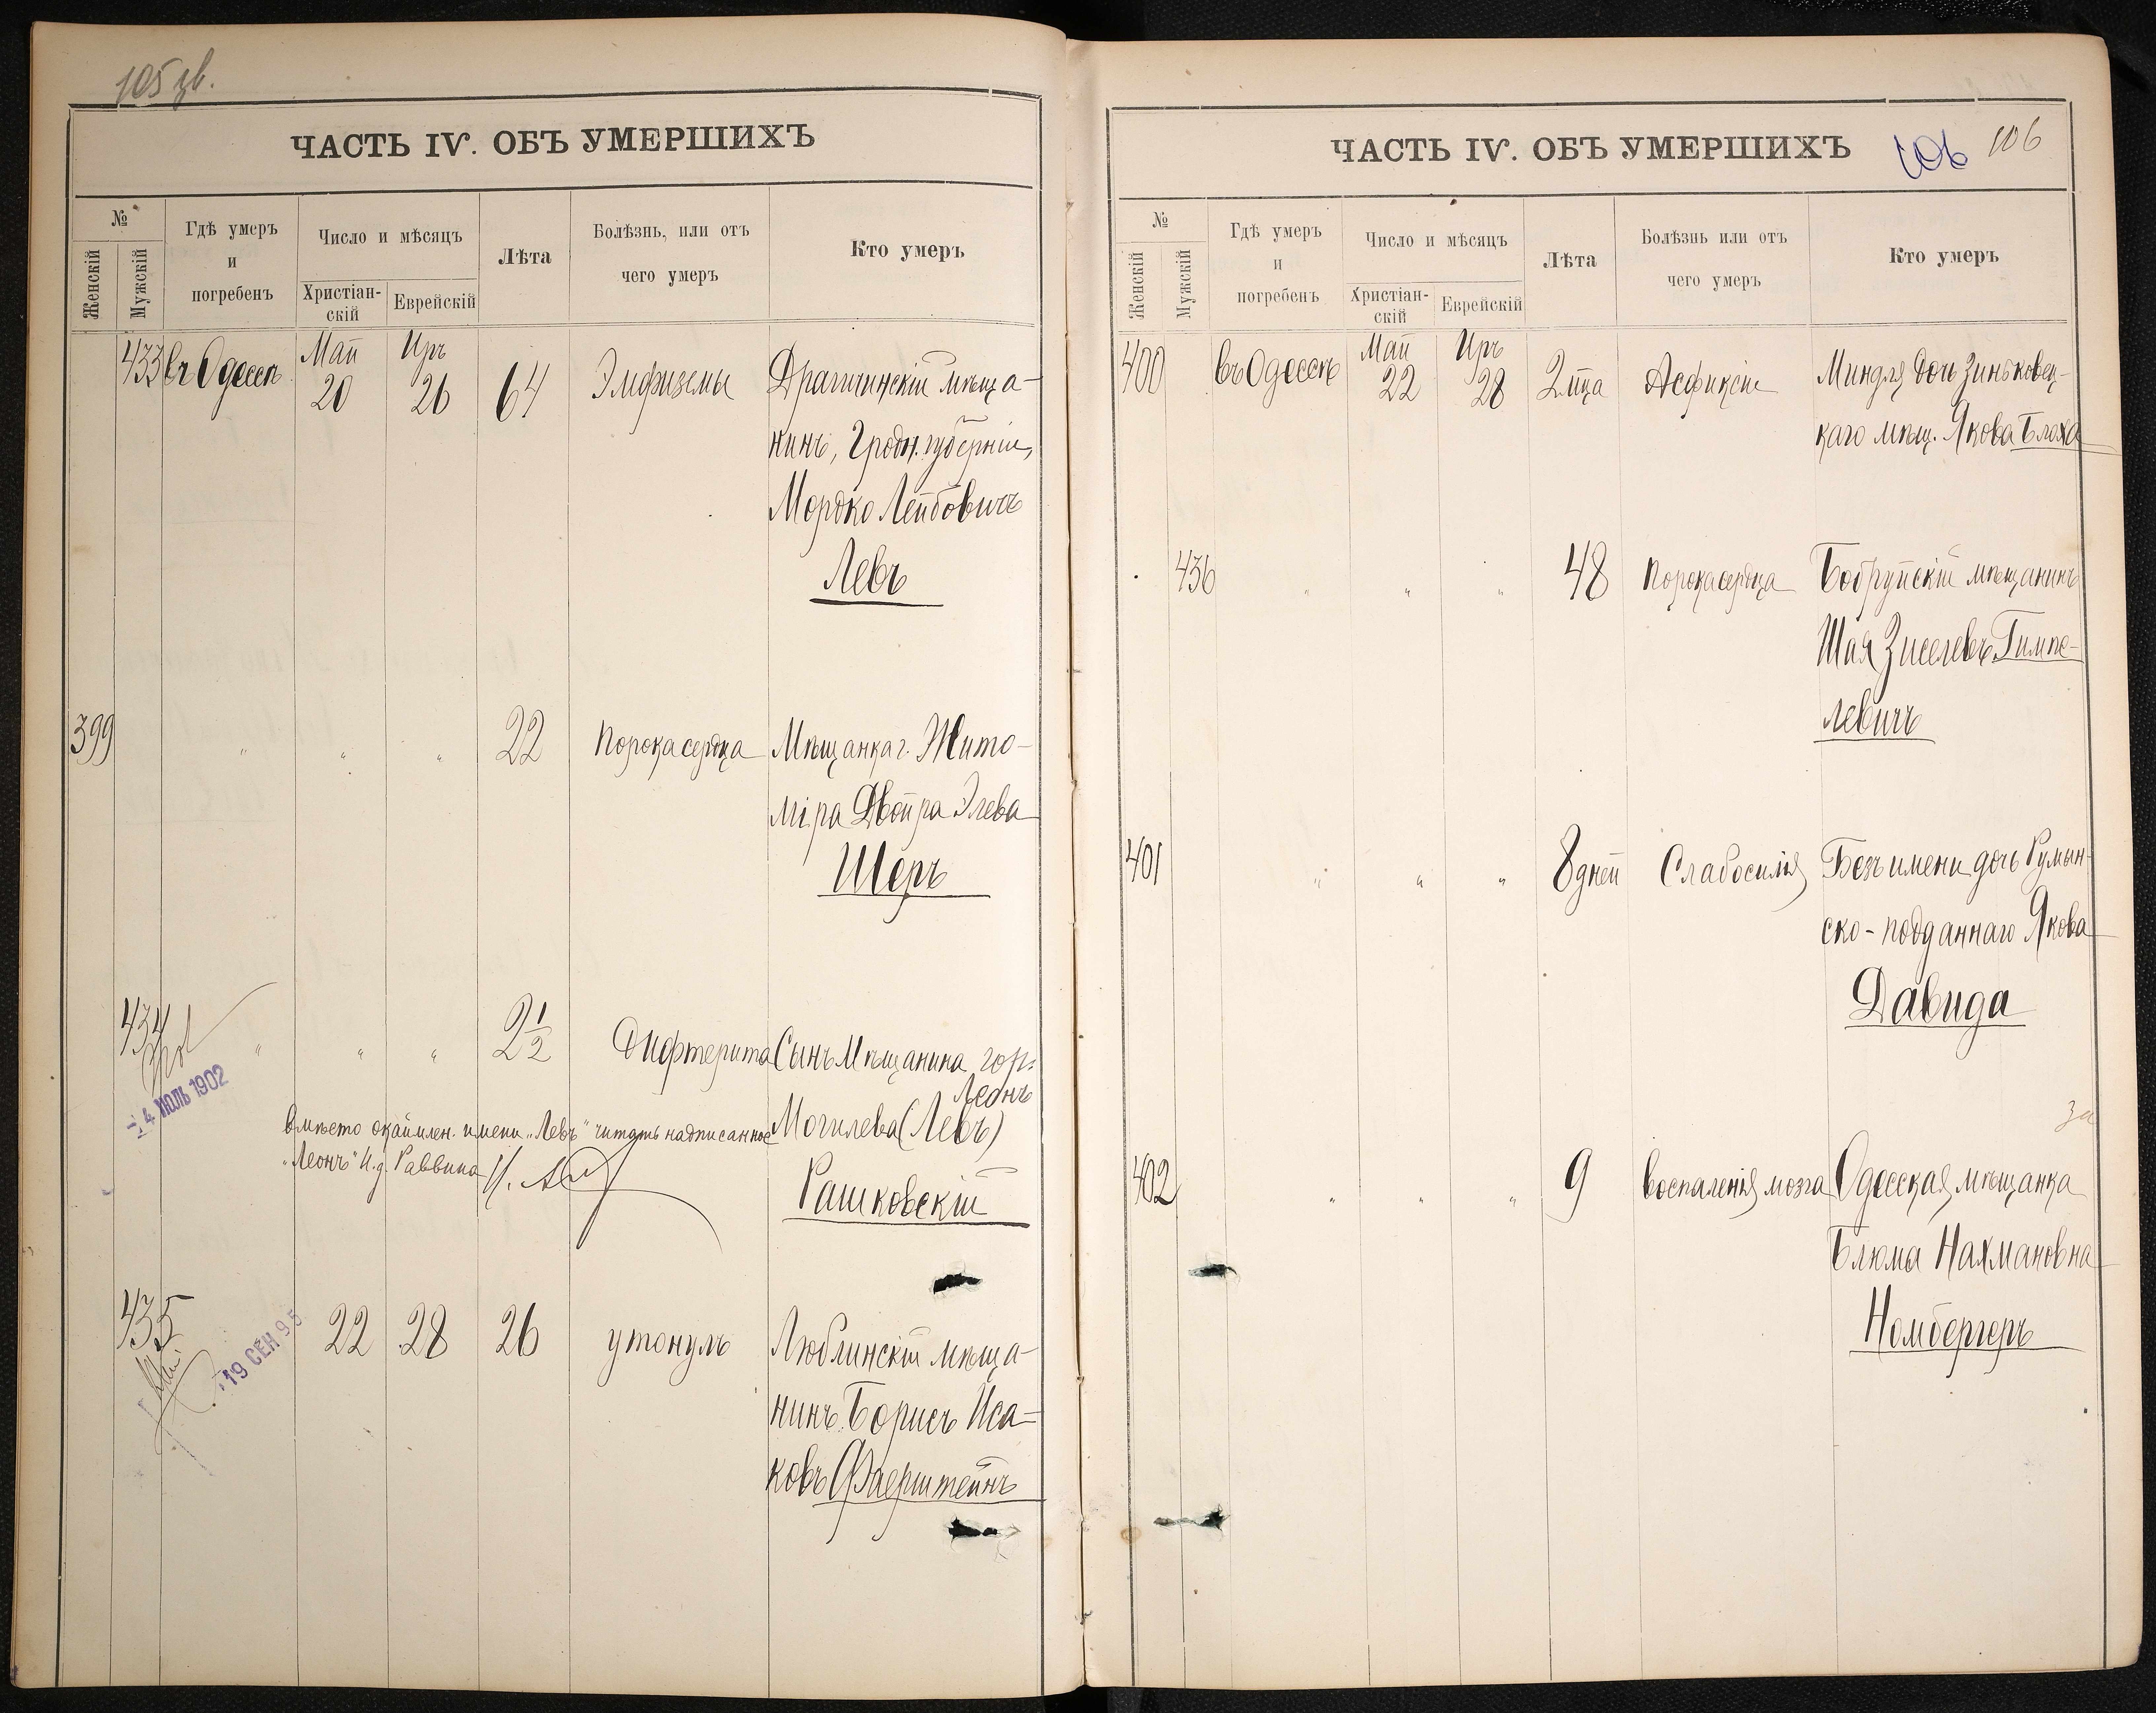 105 зв.
ЧАСТЬ IV. ОБЪ УМЕРШИХЪ
№
Женскій
Мужскій
Гдѣ умеръ
и
погребенъ
Число и мѣсяцъ
Христіан-
скій
Еврейскій
Лѣта
Болѣзнь, или отъ
чего умеръ
Кто умеръ
433 въ Одессѣ Май 20 Иръ 26 64 Эмфиземы Драгичинскій мѣща-
нинъ, Гродн. губерніи,
Мордко Лейбовичъ
Левъ
399 " " " 22 Порока сердца Мѣщанка г. Жито-
міра Двойра Элева
Шеръ
434 " " " 2 1/2 Дифтерита Сынъ Мѣщанина гор.
Леонъ
Могилева (Левъ)
Рашковскій
4 ИЮЛЬ 1902
вмѣсто окаймлен. имени „Левъ" читать надписанное
„Леонъ" И.д. Раввина
435 22 28 26 утонулъ Люблинскій мѣща-
нинъ Борисъ Иса-
ковъ Фаерштейнъ
19 СЕН 95
ЧАСТЬ IV. ОБЪ УМЕРШИХЪ
106 106
№
Женскій
Мужскій
Гдѣ умеръ
и
погребенъ
Число и мѣсяцъ
Христіан-
скій
Еврейскій
Лѣта
Болѣзнь или отъ
чего умеръ
Кто умеръ
400 въ Одессѣ Май 22 Иръ 28 2 м-ца Асфиксіи Миндля дочь Зиньковец-
каго мѣщ. Якова Блоха
436 " " " 48 Порока сердца Бобруйскій мѣщанинъ
Шая Зиселевъ Гимпе-
левичъ
401 " " " 8 дней Слабосилія Безъ имени дочь Румын-
ско-подданнаго Якова
Давида
402 " " " 9 воспаленія мозга Одесская мѣщанка
Блюма Нахмановна
Номбергеръ